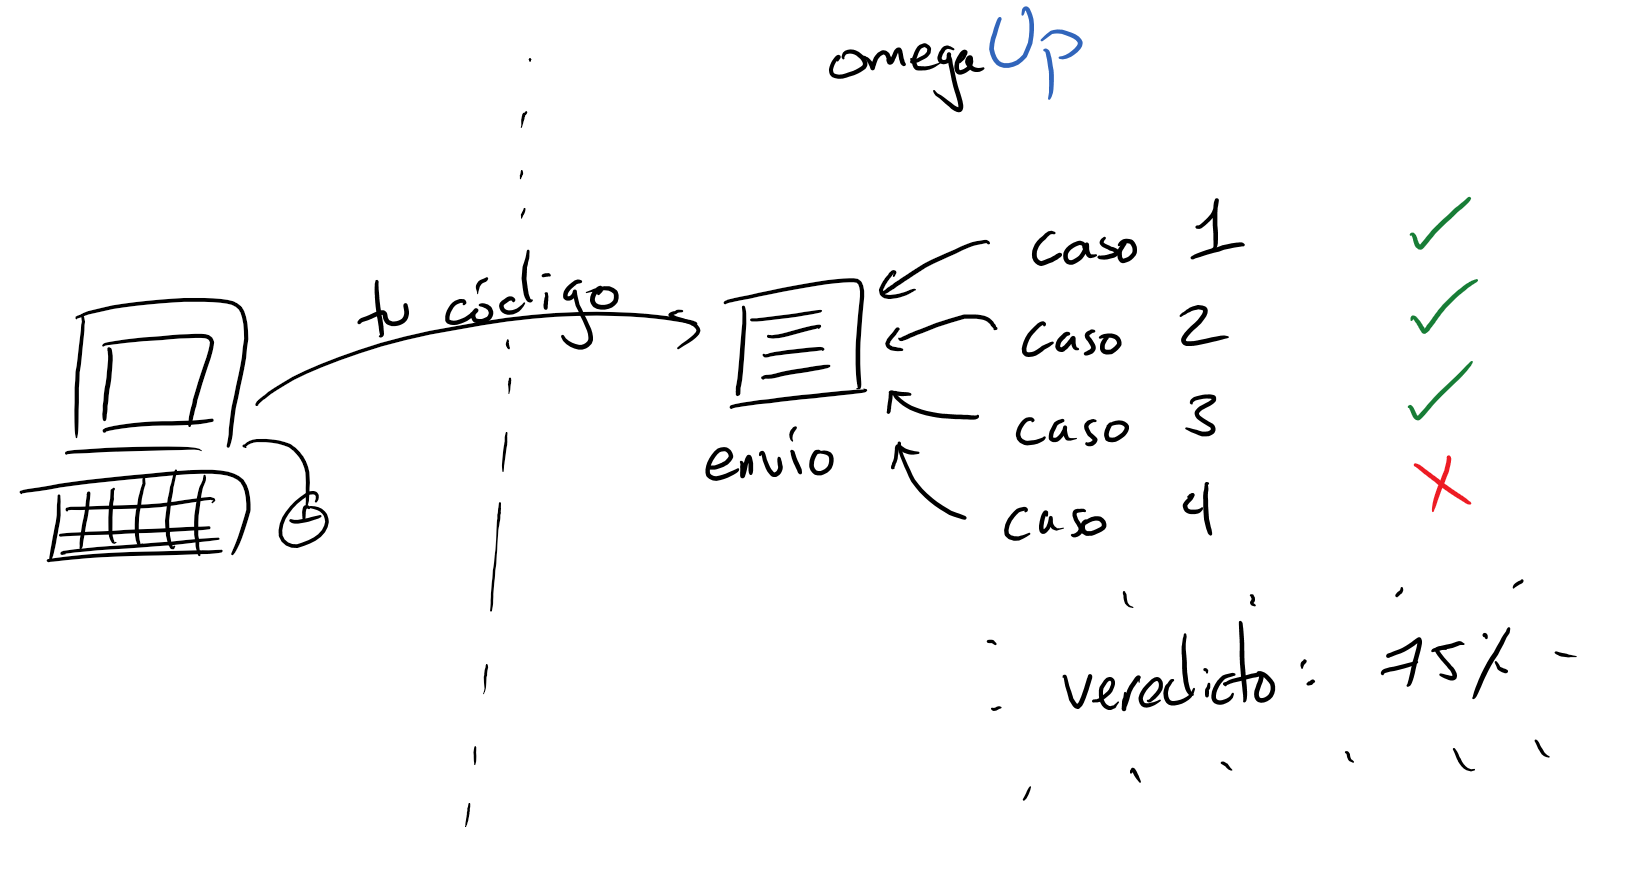 omegaUp
tu código
envío
caso 1
caso 2
caso 3
caso 4
veredicto: 75%